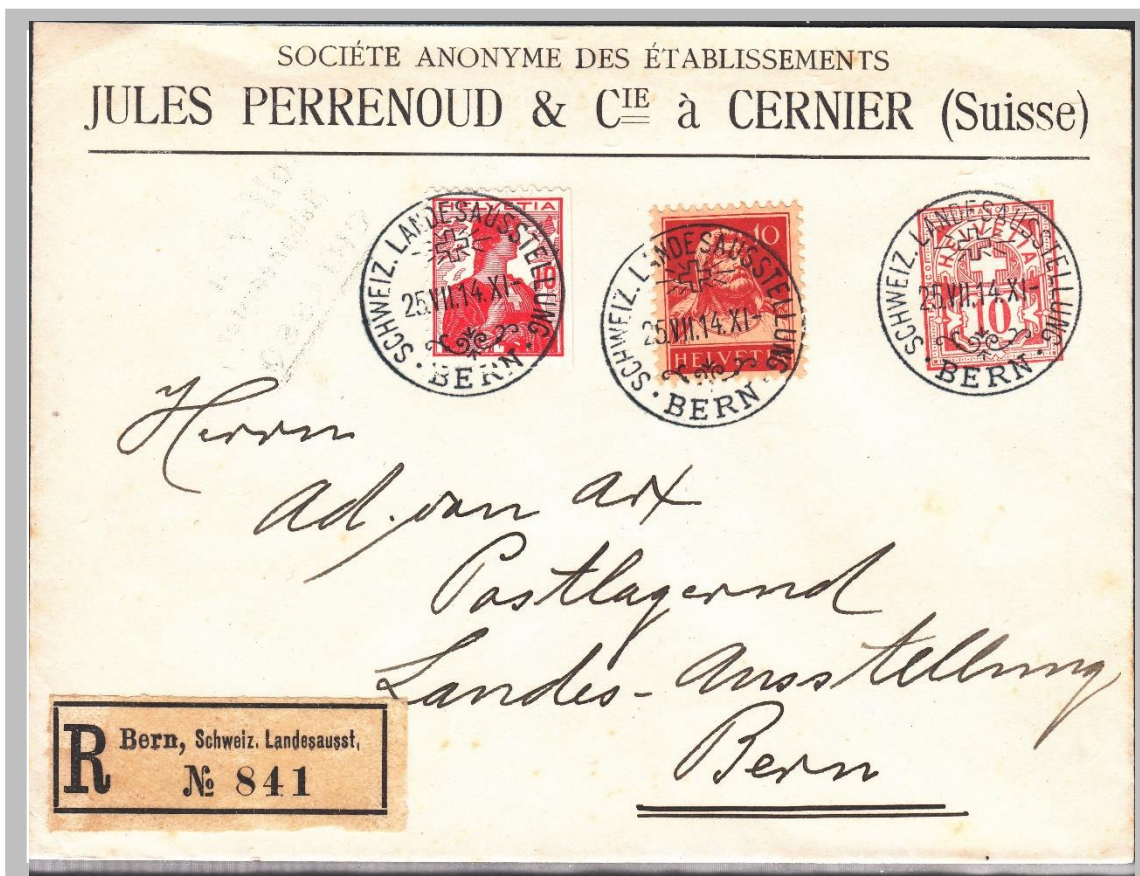 SOCIÉTE ANONYME DES ÉTABLISSEMENTS
JULES PERRENOUD & CIE à CERNIER (Suisse)
HELVETIA
SCHWEIZ. LANDESAUSSTELLUNG
25.VII.14.XI-
· BERN ·
10
HELVETIA
SCHWEIZ. LANDESAUSSTELLUNG
25.VII.14.XI-
· BERN ·
HELVETIA
10
SCHWEIZ. LANDESAUSSTELLUNG
25.VII.14.XI-
· BERN ·
Herrn
Ad. von Arx
Postlagernd
Landes-Ausstellung
Bern
R Bern, Schweiz. Landesausst.
№ 841